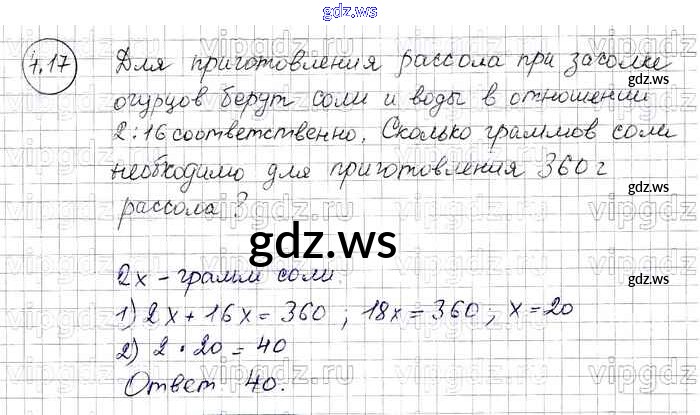 gdz.ws
4.17 Для приготовления рассола при засолке
огурцов берут соли и воды в отношении
2:16 соответственно. Сколько граммов соли
необходимо для приготовления 360 г
рассола?
gdz.ws
2x - грамм соли.
1) 2x + 16x = 360 ; 18x = 360; x = 20
2) 2 · 20 = 40
Ответ 40.
gdz.ws
gdz.ws
gdz.ws
gdz.ws